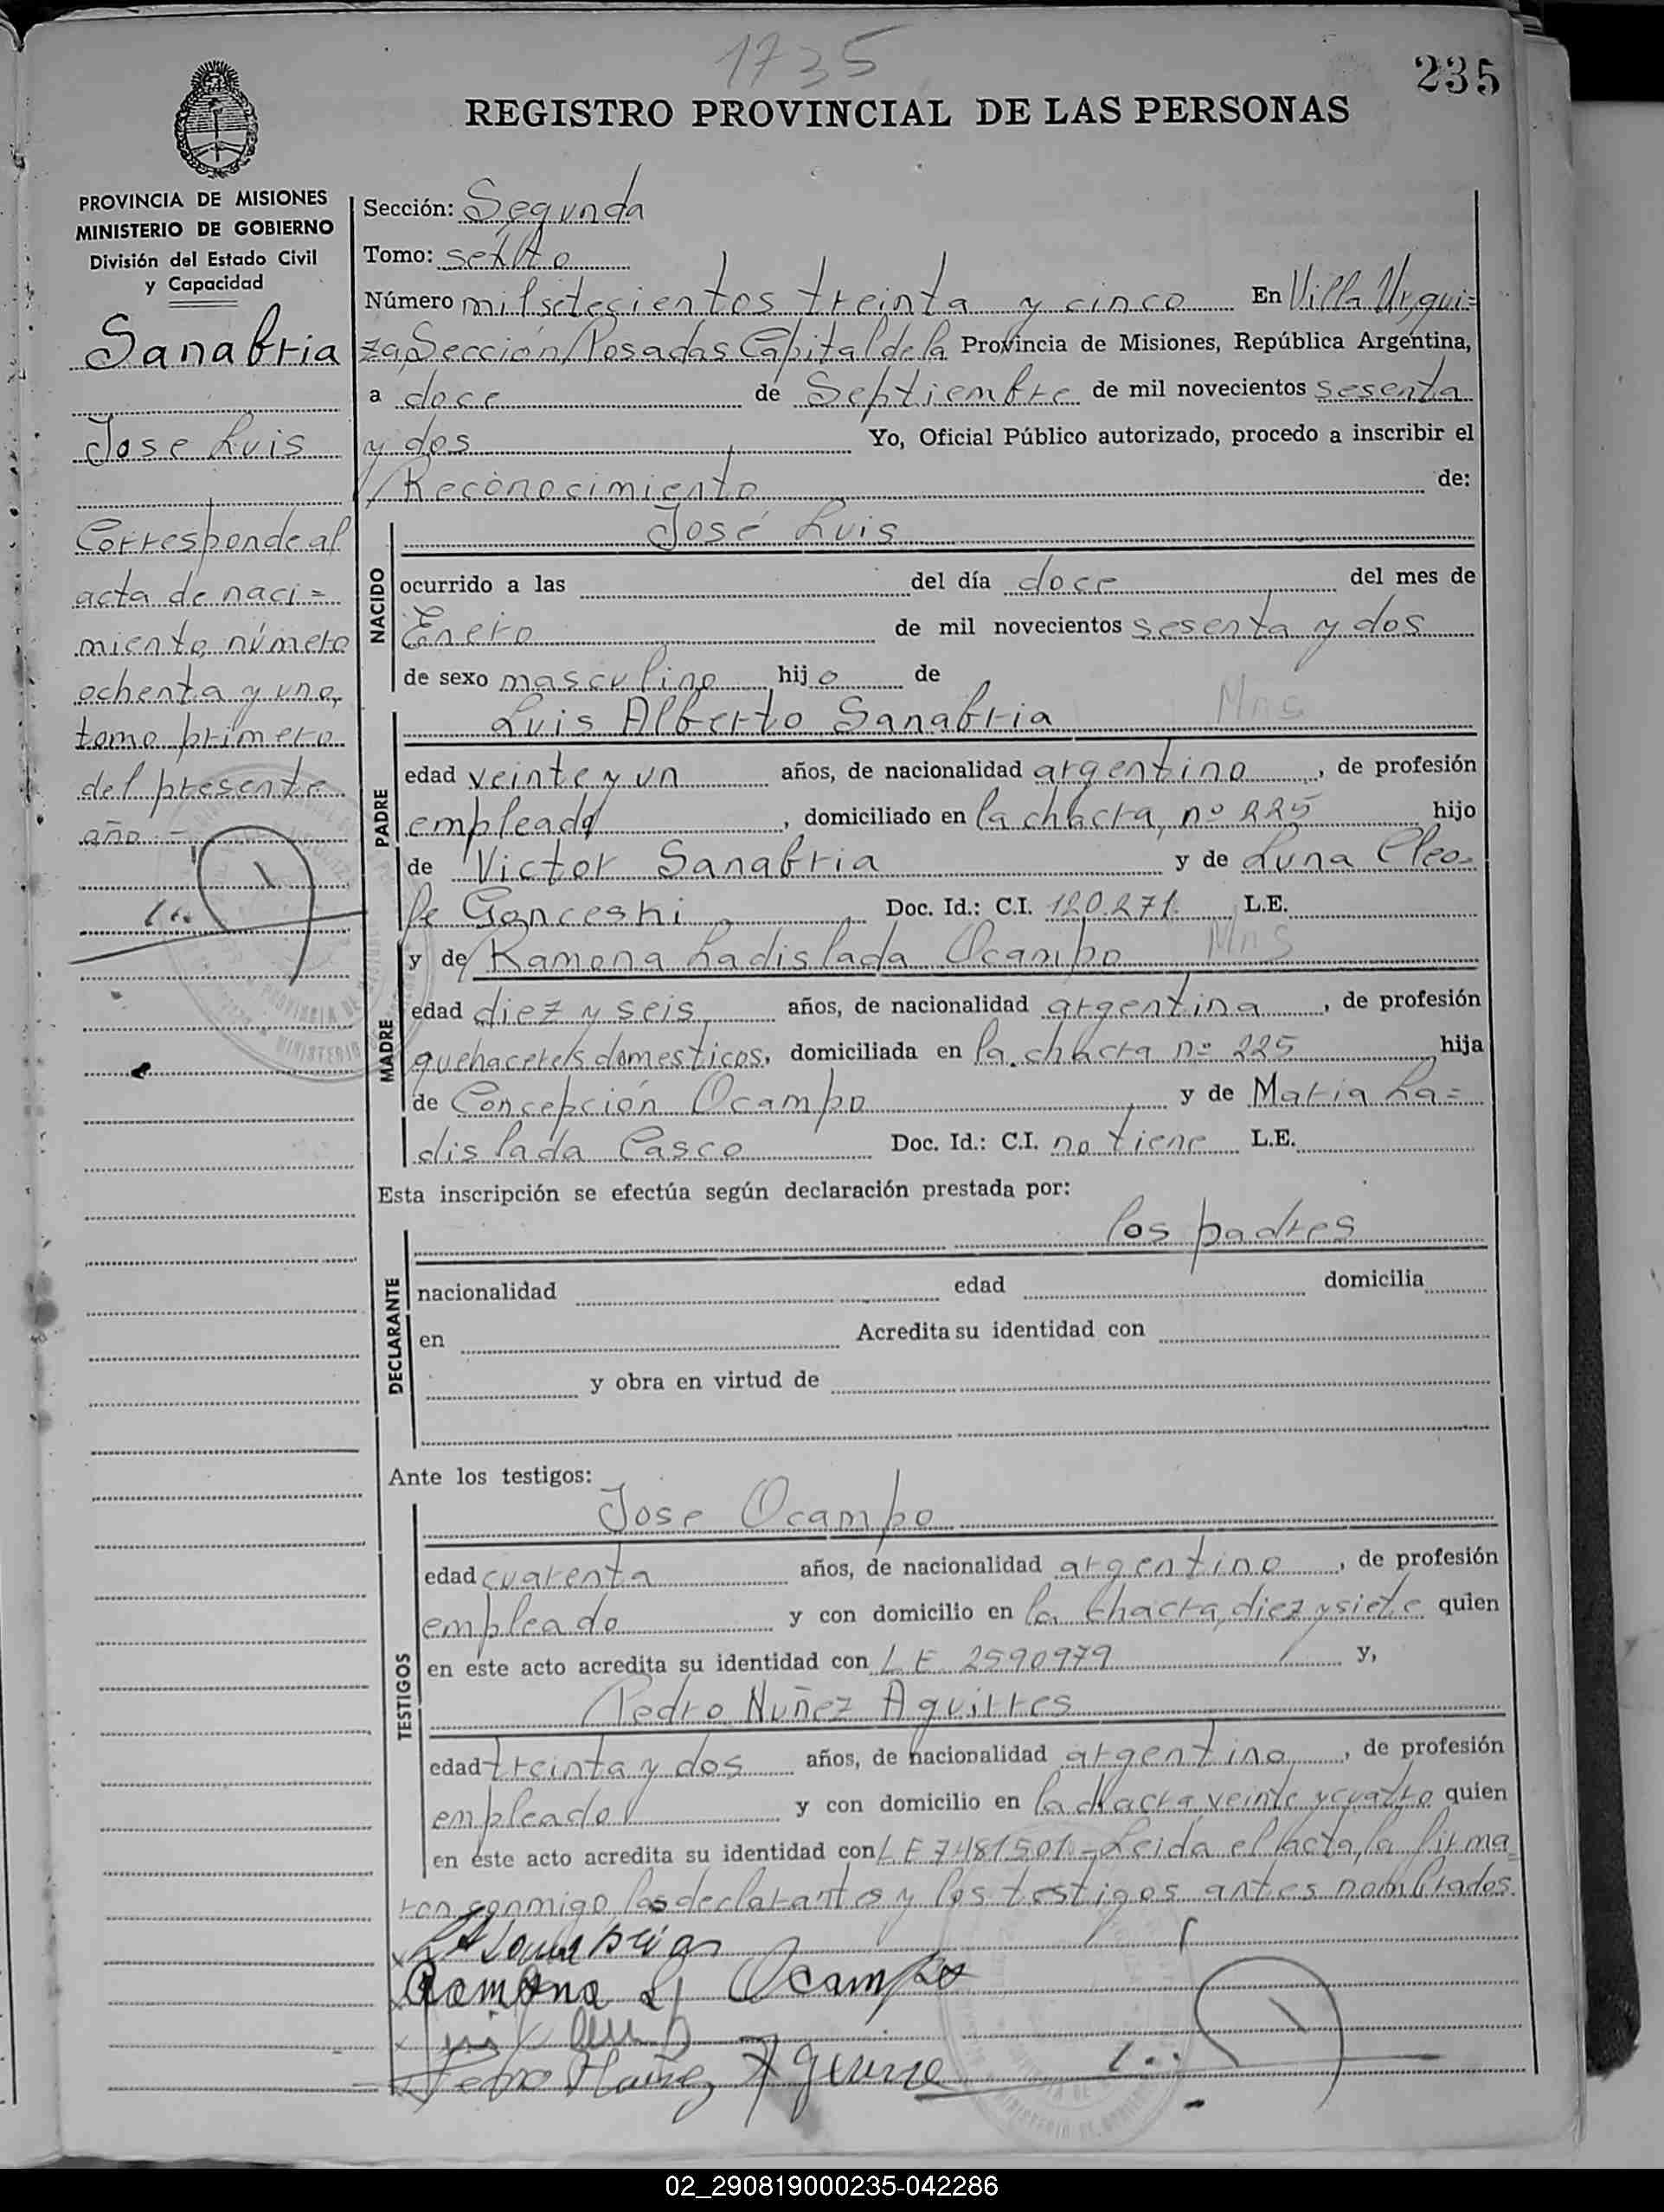 1735
235
REGISTRO PROVINCIAL DE LAS PERSONAS
PROVINCIA DE MISIONES
MINISTERIO DE GOBIERNO
División del Estado Civil
y Capacidad
Sanabria
Jose Luis
Corresponde al
acta de naci=
miento, número
ochenta y uno,
tomo primero
del presente
año.=
Sección: Segunda
Tomo: sexto
Número mil setecientos treinta y cinco En Villa Urqui=
za, Sección Posadas Capital de la Provincia de Misiones, República Argentina,
a doce de Septiembre de mil novecientos sesenta
y dos Yo, Oficial Público autorizado, procedo a inscribir el
Reconocimiento de:
NACIDO
José Luis
ocurrido a las del día doce del mes de
Enero de mil novecientos sesenta y dos
de sexo masculino hijo de
PADRE
Luis Alberto Sanabria Mns
edad veinte y un años, de nacionalidad argentino, de profesión
empleado, domiciliado en la chacra, nº 225 hijo
de Victor Sanabria y de Luna Cleo=
fe Gonceski Doc. Id.: C.I. 120.271. L.E.
MADRE
y de Ramona Ladislada Ocampo Mns
edad diez y seis años, de nacionalidad argentina, de profesión
quehaceres domesticos, domiciliada en la chacra nº 225 hija
de Concepción Ocampo y de Maria La=
dislada Casco Doc. Id.: C.I. no tiene L.E.
Esta inscripción se efectúa según declaración prestada por:
DECLARANTE
los padres
nacionalidad edad domicilia
en Acredita su identidad con
y obra en virtud de
Ante los testigos:
TESTIGOS
Jose Ocampo
edad cuarenta años, de nacionalidad argentino, de profesión
empleado y con domicilio en la chacra, diez y siete quien
en este acto acredita su identidad con L E 2590979 y,
Pedro Nuñez Aguirres
edad treinta y dos años, de nacionalidad argentino, de profesión
empleado y con domicilio en la chacra veinte y cuatro quien
en este acto acredita su identidad con L E 7481501.- Leida el acta, la firma
ron conmigo los declarantes y los testigos antes nombrados.
Ramona L Ocampo
Pedro Nuñez Aguirre
02_290819000235-042286